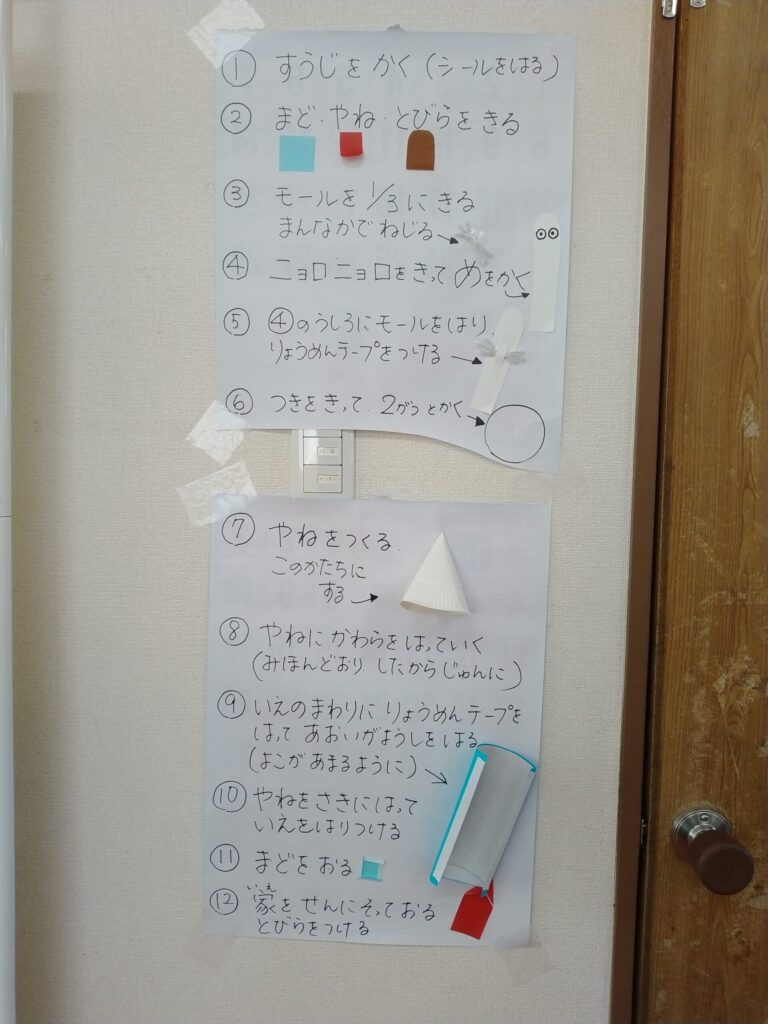 ① すうじをかく(シールをはる)
② まど・やね・とびらをきる
③ モールを1/3にきる
まんなかでねじる
④ ニョロニョロをきってめをかく
⑤ ④のうしろにモールをはり、
りょうめんテープをつける
⑥ つきをきって、2がつとかく
⑦ やねをつくる
このかたちに
する
⑧ やねにかわらをはっていく
(みほんどおり したからじゅんに)
⑨ いえのまわりにりょうめんテープを
はって あおいがようしをはる
(よこがあまるように)
⑩ やねをさきにはって
いえをはりつける
⑪ まどをおる
⑫ 家をせんにそっておる
いえ
とびらをつける